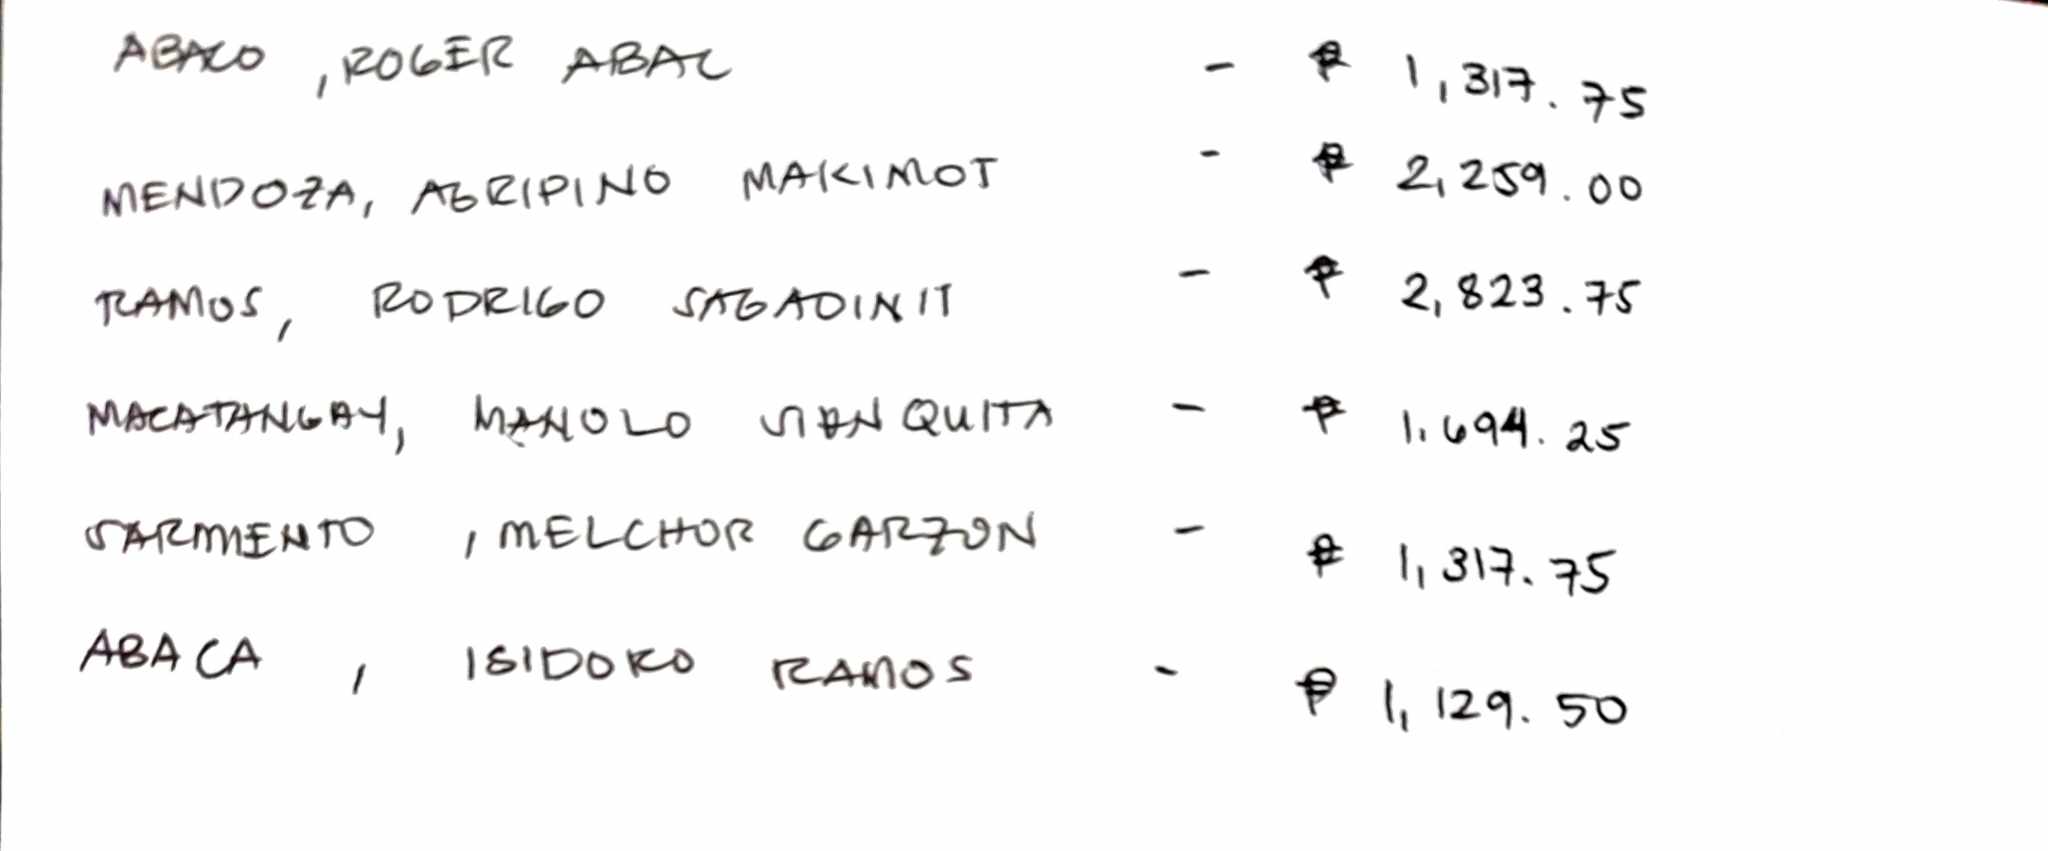 ABACO , ROGER ABAC - ₱ 1,317.75
MENDOZA, AGRIPINO MAKIMOT - ₱ 2,259.00
RAMOS, RODRIGO SAGADINIT - ₱ 2,823.75
MACATANGAY, MANOLO SIANQUITA - ₱ 1.694.25
SARMIENTO , MELCHOR GARZON - ₱ 1,317.75
ABACA , ISIDORO RAMOS - ₱ 1,129.50